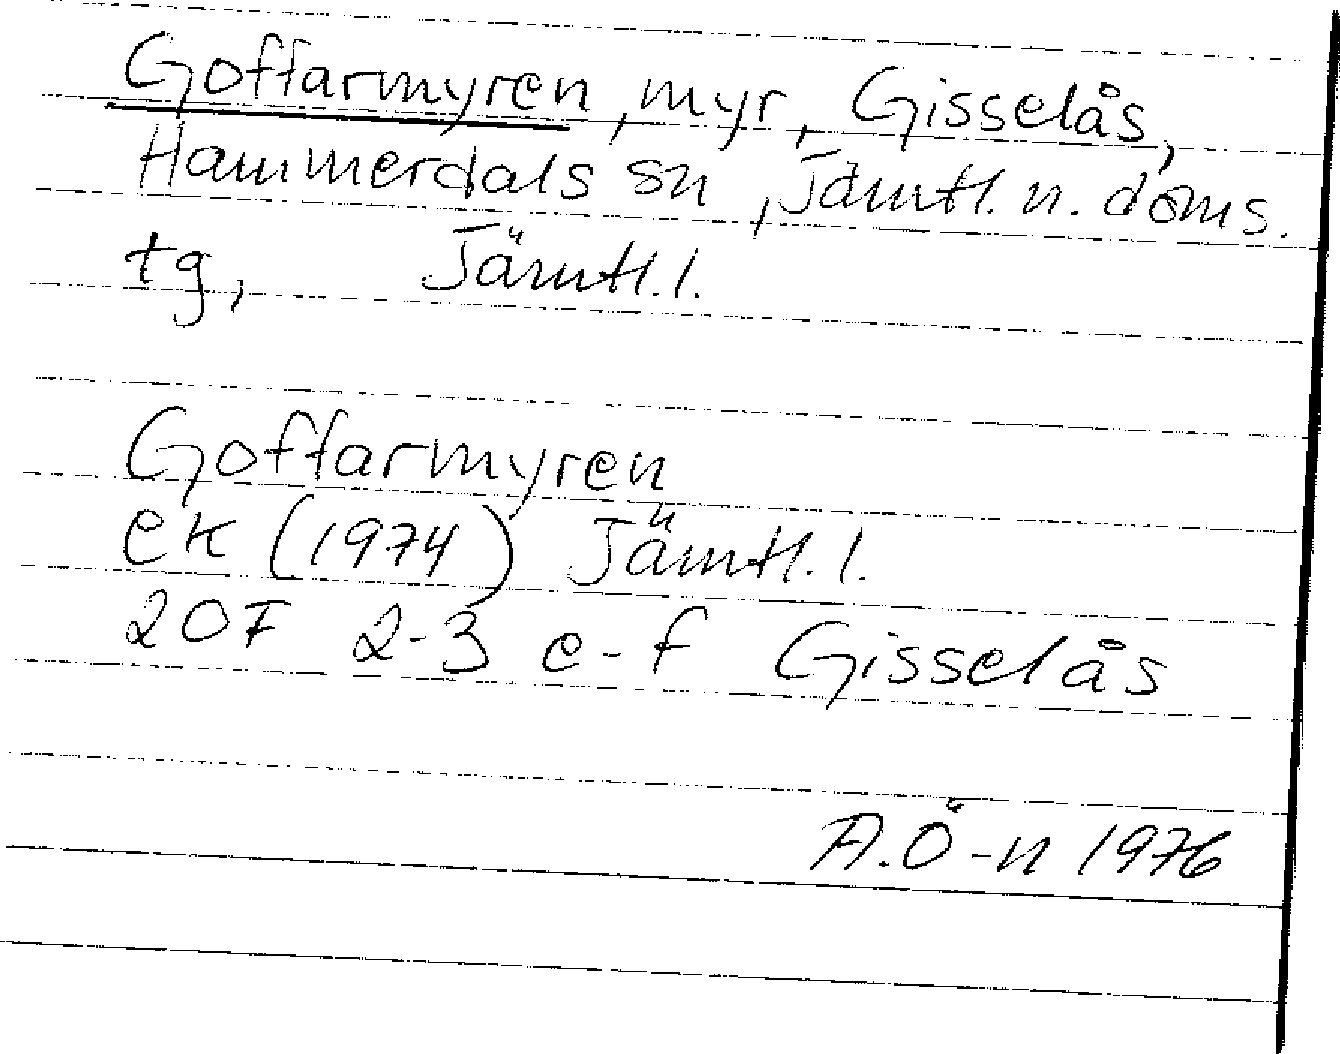 Goffarmyren, myr, Gisselås,
Hammerdals sn, Jämtl. n. doms.
tg, Jämtl. l.
Goffarmyren
ek (1974) Jämtl. l.
20F 2-3 e-f Gisselås
A.Ö-n 1976